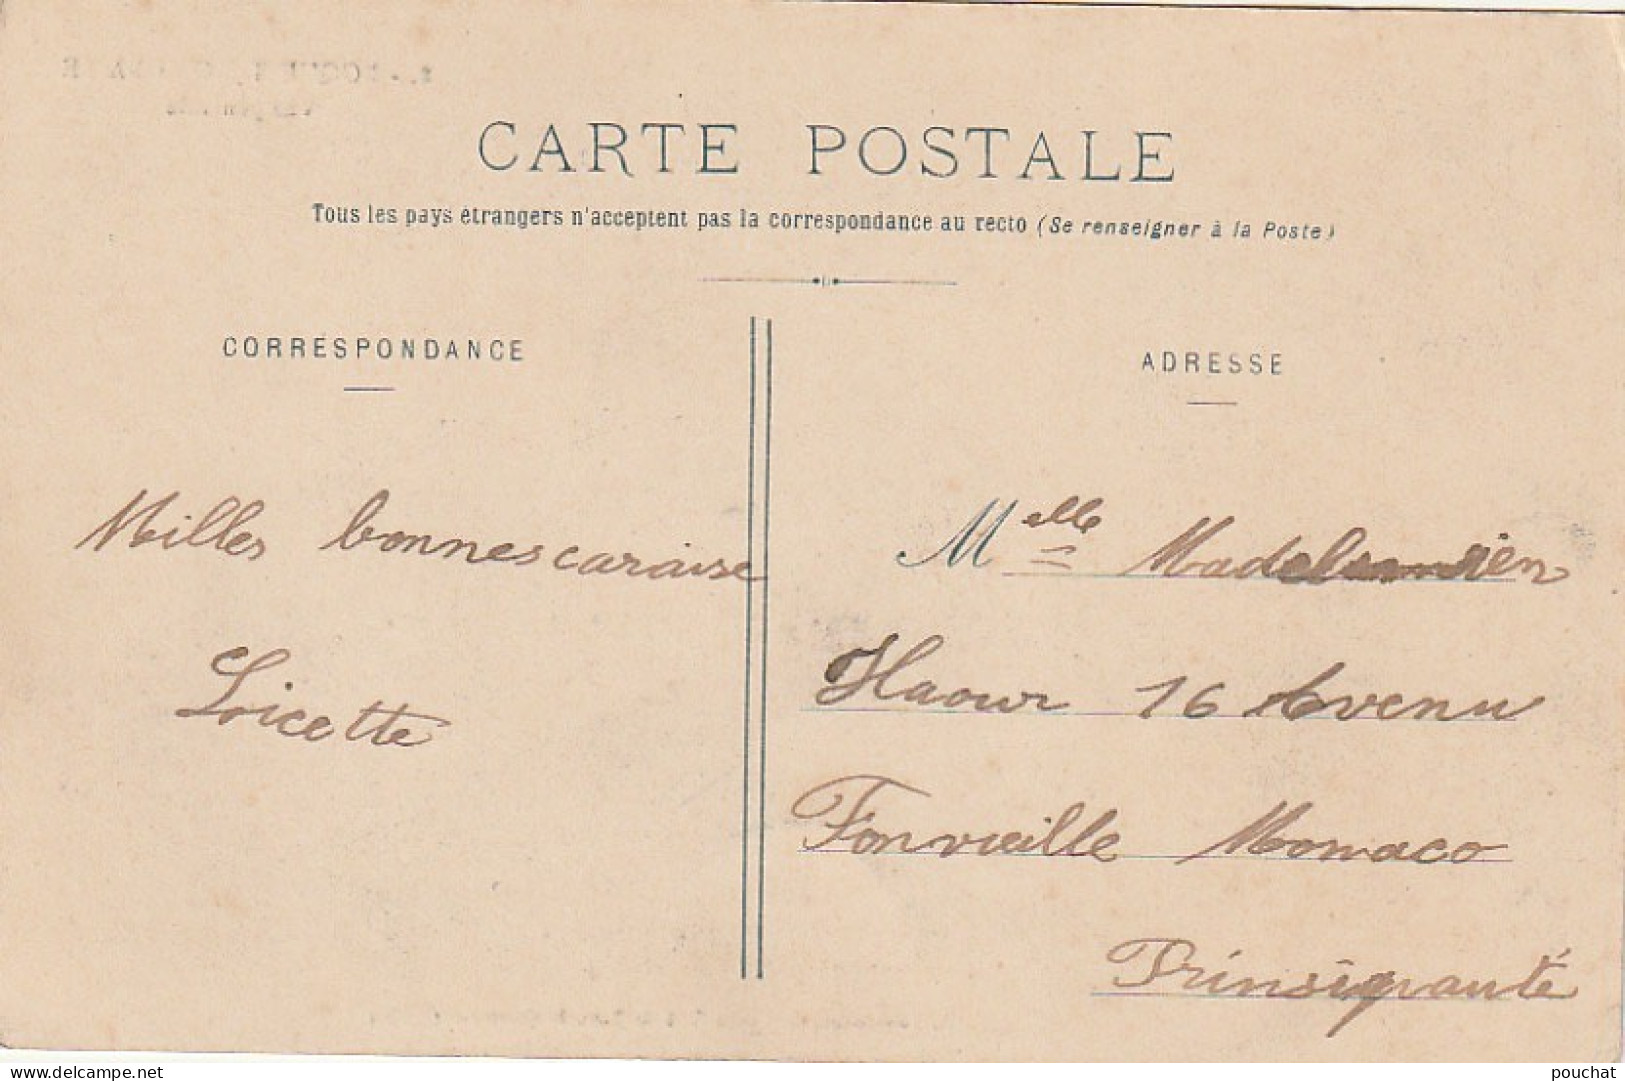 CARTE POSTALE
Tous les pays étrangers n'acceptent pas la correspondance au recto (Se renseigner à la Poste)
CORRESPONDANCE
ADRESSE
Milles bonnes caraise
Licette
Melle
Haour 16 Avenu
Fonvieille Monaco
Prinsipauté
delcampe.net
pouchat